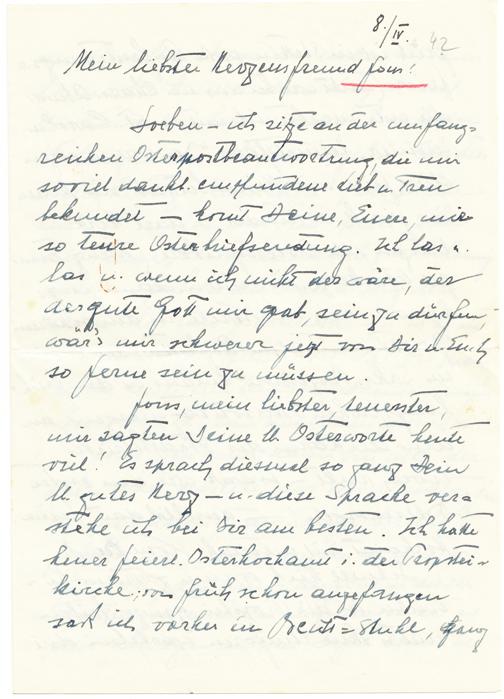 8./IV. 42
Mein liebster Herzensfreund Jons!
Soeben – ich sitze an der umfang-
reichen Osterpostbeantwortung, die mir
soviel dankb. empfundene Lieb u. Treu
bekundet – komt Deine, Euere, mir
so teure Osterbriefsendung. Ich las u.
las u. wenn ich nicht der wäre, der
der gute Gott mir gab, sein zu dürfen,
wär's mir schwerer jetzt von Dir u. Euch
so ferne sein zu müssen.
Jons, mein liebster, teuerster,
mir sagten Deine lb. Osterworte heute
viel! Es sprach diesmal so ganz Dein
lb. gutes Herz – u. diese Sprache ver=
stehe ich bei Dir am besten. Ich hatte
heuer feierl. Osterhochamt i. der Propstei=
kirche; von früh schon angefangen
saß ich vorher im Beicht=Stuhl, ganz